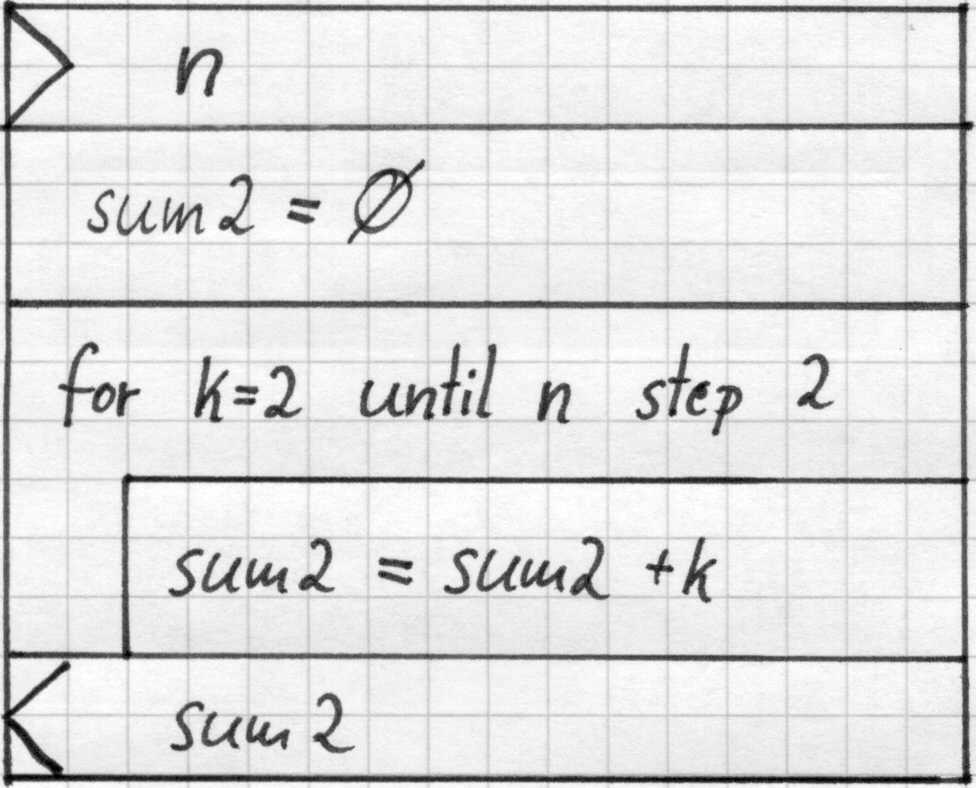 n
sum2 = Ø
for k=2 until n step 2
sum2 = sum2 +k
sum2